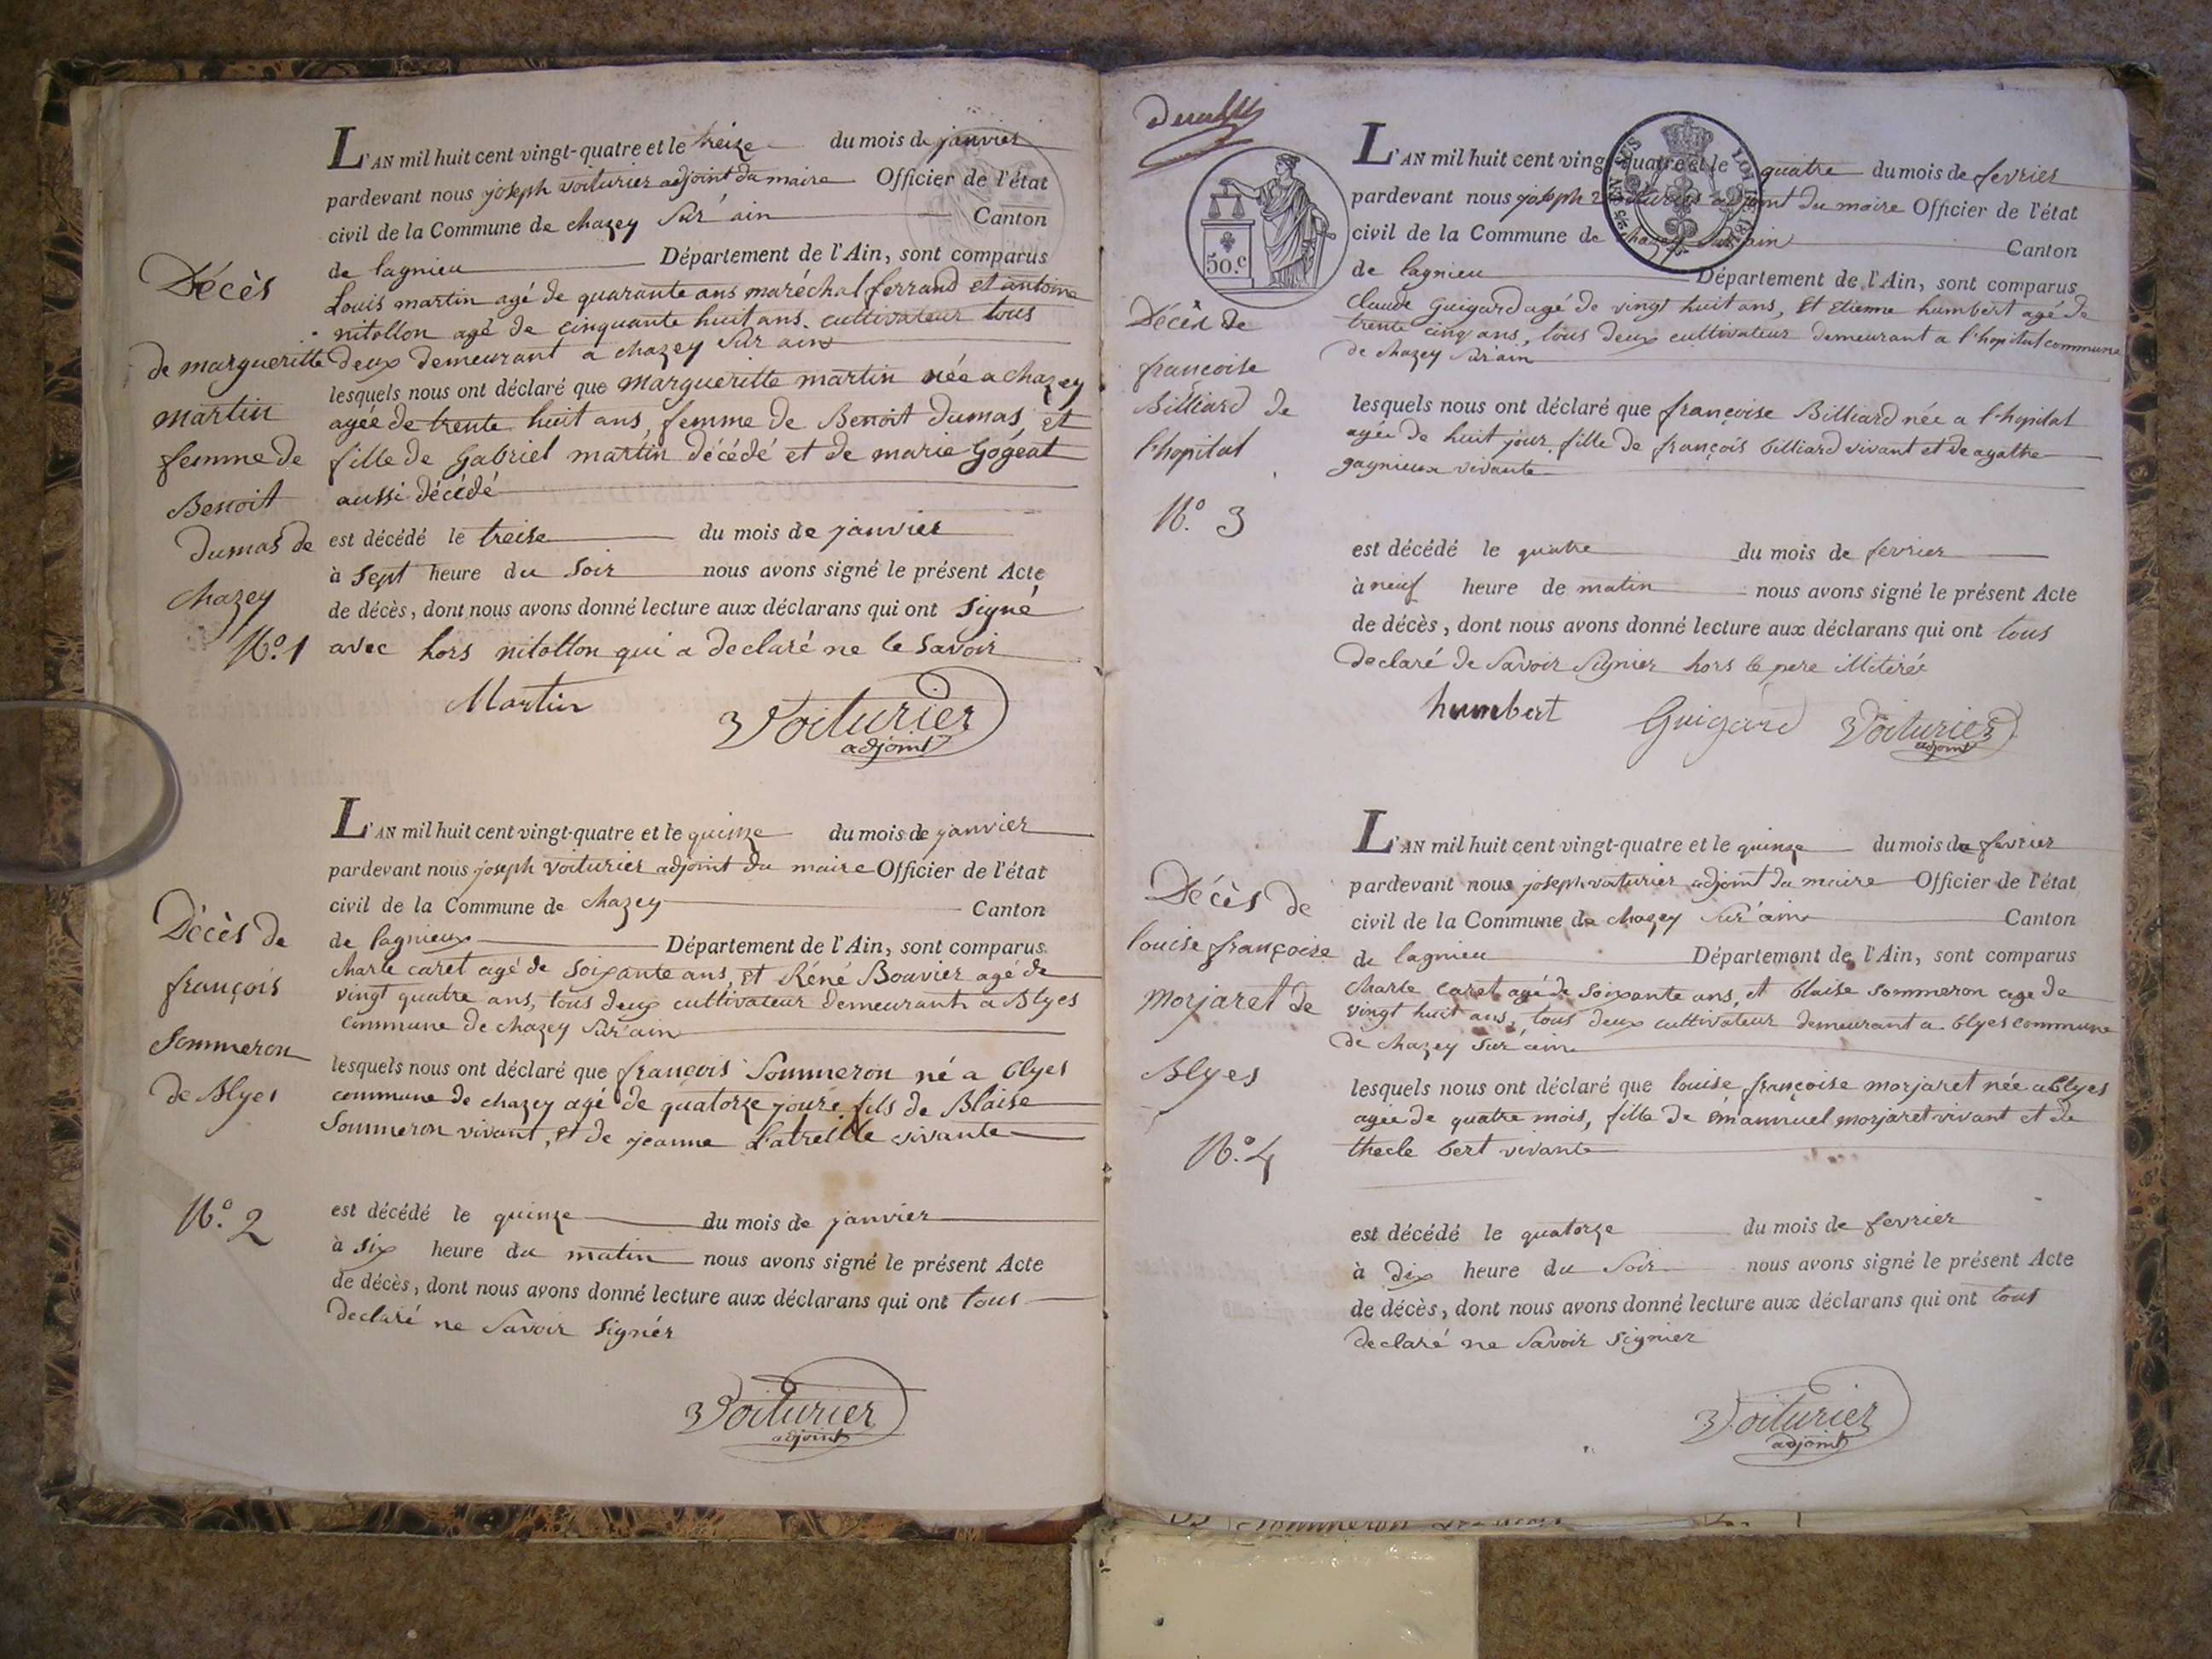 L'AN mil huit cent vingt-quatre et le treize du mois de janvier
pardevant nous joseph voiturier adjoint du maire Officier de l'état
civil de la Commune de chazey sur ain Canton
de lagnieu Département de l'Ain, sont comparus
Louis martin agé de quarante ans maréchal ferrand et antoine
nitollon agé de cinquante huit ans cultivateur tous
deux demeurant a chazey sur ain
lesquels nous ont déclaré que margueritte martin née a chazey
agée de trente huit ans, femme de Benoit dumas, et
fille de Gabriel martin décédé et de marie Gógeat
aussi décédé
est décédé le treise du mois de janvier
à sept heure du soir nous avons signé le présent Acte
de décès, dont nous avons donné lecture aux déclarans qui ont signé
avec hors nitollon qui a declaré ne le savoir
Martin Voiturier
adjoint
Décès
de margueritte
martin
femme de
Benoit
dumas de
chazey
N.º 1
L'AN mil huit cent vingt-quatre et le quinze du mois de janvier
pardevant nous joseph voiturier adjoint du maire Officier de l'état
civil de la Commune de chazey Canton
de lagnieux Département de l'Ain, sont comparus
charle caret agé de soixante ans, et Réné Bouvier agé de
vingt quatre ans, tous deux cultivateur demeurant a Blyes
commune de chazey sur ain
lesquels nous ont déclaré que françois Sommeron né a blyes
commune de chazey agé de quatorze jours fils de Blaise
Sommeron vivant, et de jeanne Latreille vivante
est décédé le quinze du mois de janvier
à six heure du matin nous avons signé le présent Acte
de décès, dont nous avons donné lecture aux déclarans qui ont tous
declaré ne savoir signér
Voiturier
adjoint
Décès de
françois
Sommeron
de Blyes
N.º 2
50.c
L'AN mil huit cent vingt-quatre et le quatre du mois de fevrier
pardevant nous joseph voiturier adjoint du maire Officier de l'état
civil de la Commune de chazey sur ain Canton
de lagnieu Département de l'Ain, sont comparus
claude Guigard agé de vingt huit ans, et Etienne humbert agé de
trente cinq ans, tous deux cultivateur demeurant a l'hopital commune
de chazey sur ain
lesquels nous ont déclaré que françoise Billiard née a l'hopital
agée de huit jour fille de françois billiard vivant et de agathe
gagnieux vivante
est décédé le quatre du mois de fevrier
à neuf heure de matin nous avons signé le présent Acte
de décès, dont nous avons donné lecture aux déclarans qui ont tous
declaré de savoir signier hors le pere
humbert Guigard Voiturier
adjoint
Décès de
françoise
Billiard de
l'hopital
N.º 3
L'AN mil huit cent vingt-quatre et le quinze du mois de fevrier
pardevant nous joseph voiturier adjoint du maire Officier de l'état
civil de la Commune de chazey sur ain Canton
de lagnieu Département de l'Ain, sont comparus
charle caret agé de soixante ans, et blaise sommeron age de
vingt huit ans, tous deux cultivateur demeurant a blyes commune
de chazey sur ain
lesquels nous ont déclaré que louise françoise morjaret née a blyes
agée de quatre mois, fille de émanuel morjaret vivant et de
thecle bert vivante
est décédé le quatorze du mois de fevrier
à dix heure du soir nous avons signé le présent Acte
de décès, dont nous avons donné lecture aux déclarans qui ont tous
declaré ne savoir signier
Voiturier
adjoint
Décès de
louise françoise
morjaret de
Blyes
N.º 4